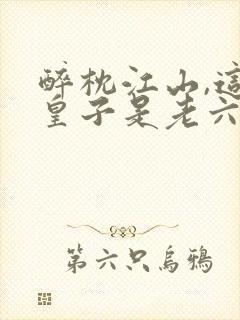 醉枕江山,這
皇子是老六
第六只烏鴉